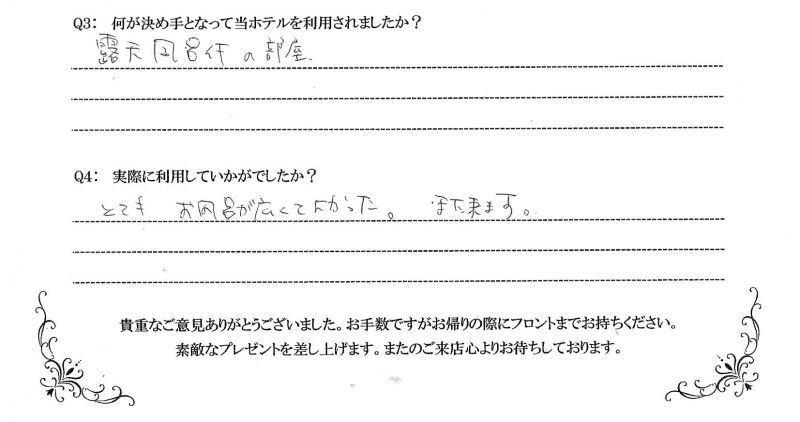 Q3： 何が決め手となって当ホテルを利用されましたか？
露天風呂付の部屋．
Q4： 実際に利用していかがでしたか？
とても お風呂が広くてよかった。 また来ます。
貴重なご意見ありがとうございました。お手数ですがお帰りの際にフロントまでお持ちください。
素敵なプレゼントを差し上げます。またのご来店心よりお待ちしております。